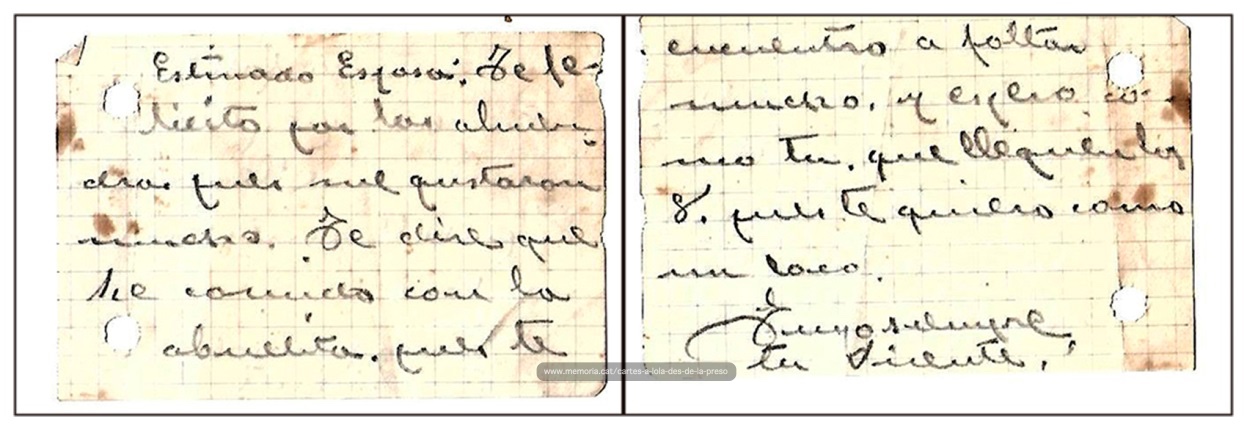 Estimado Esposa: Te fe-
licito por las almen-
dras pues me gustaron
mucho. Te dire que
he comido con la
abuelita. pues te
encuentro a faltar
mucho. y espero co-
mo tu. que lleguen las
8. pues te quiero como
un loco.
Tuyo siempre
tu Vicente.
www.memoria.cat/cartes-a-lola-des-de-la-preso